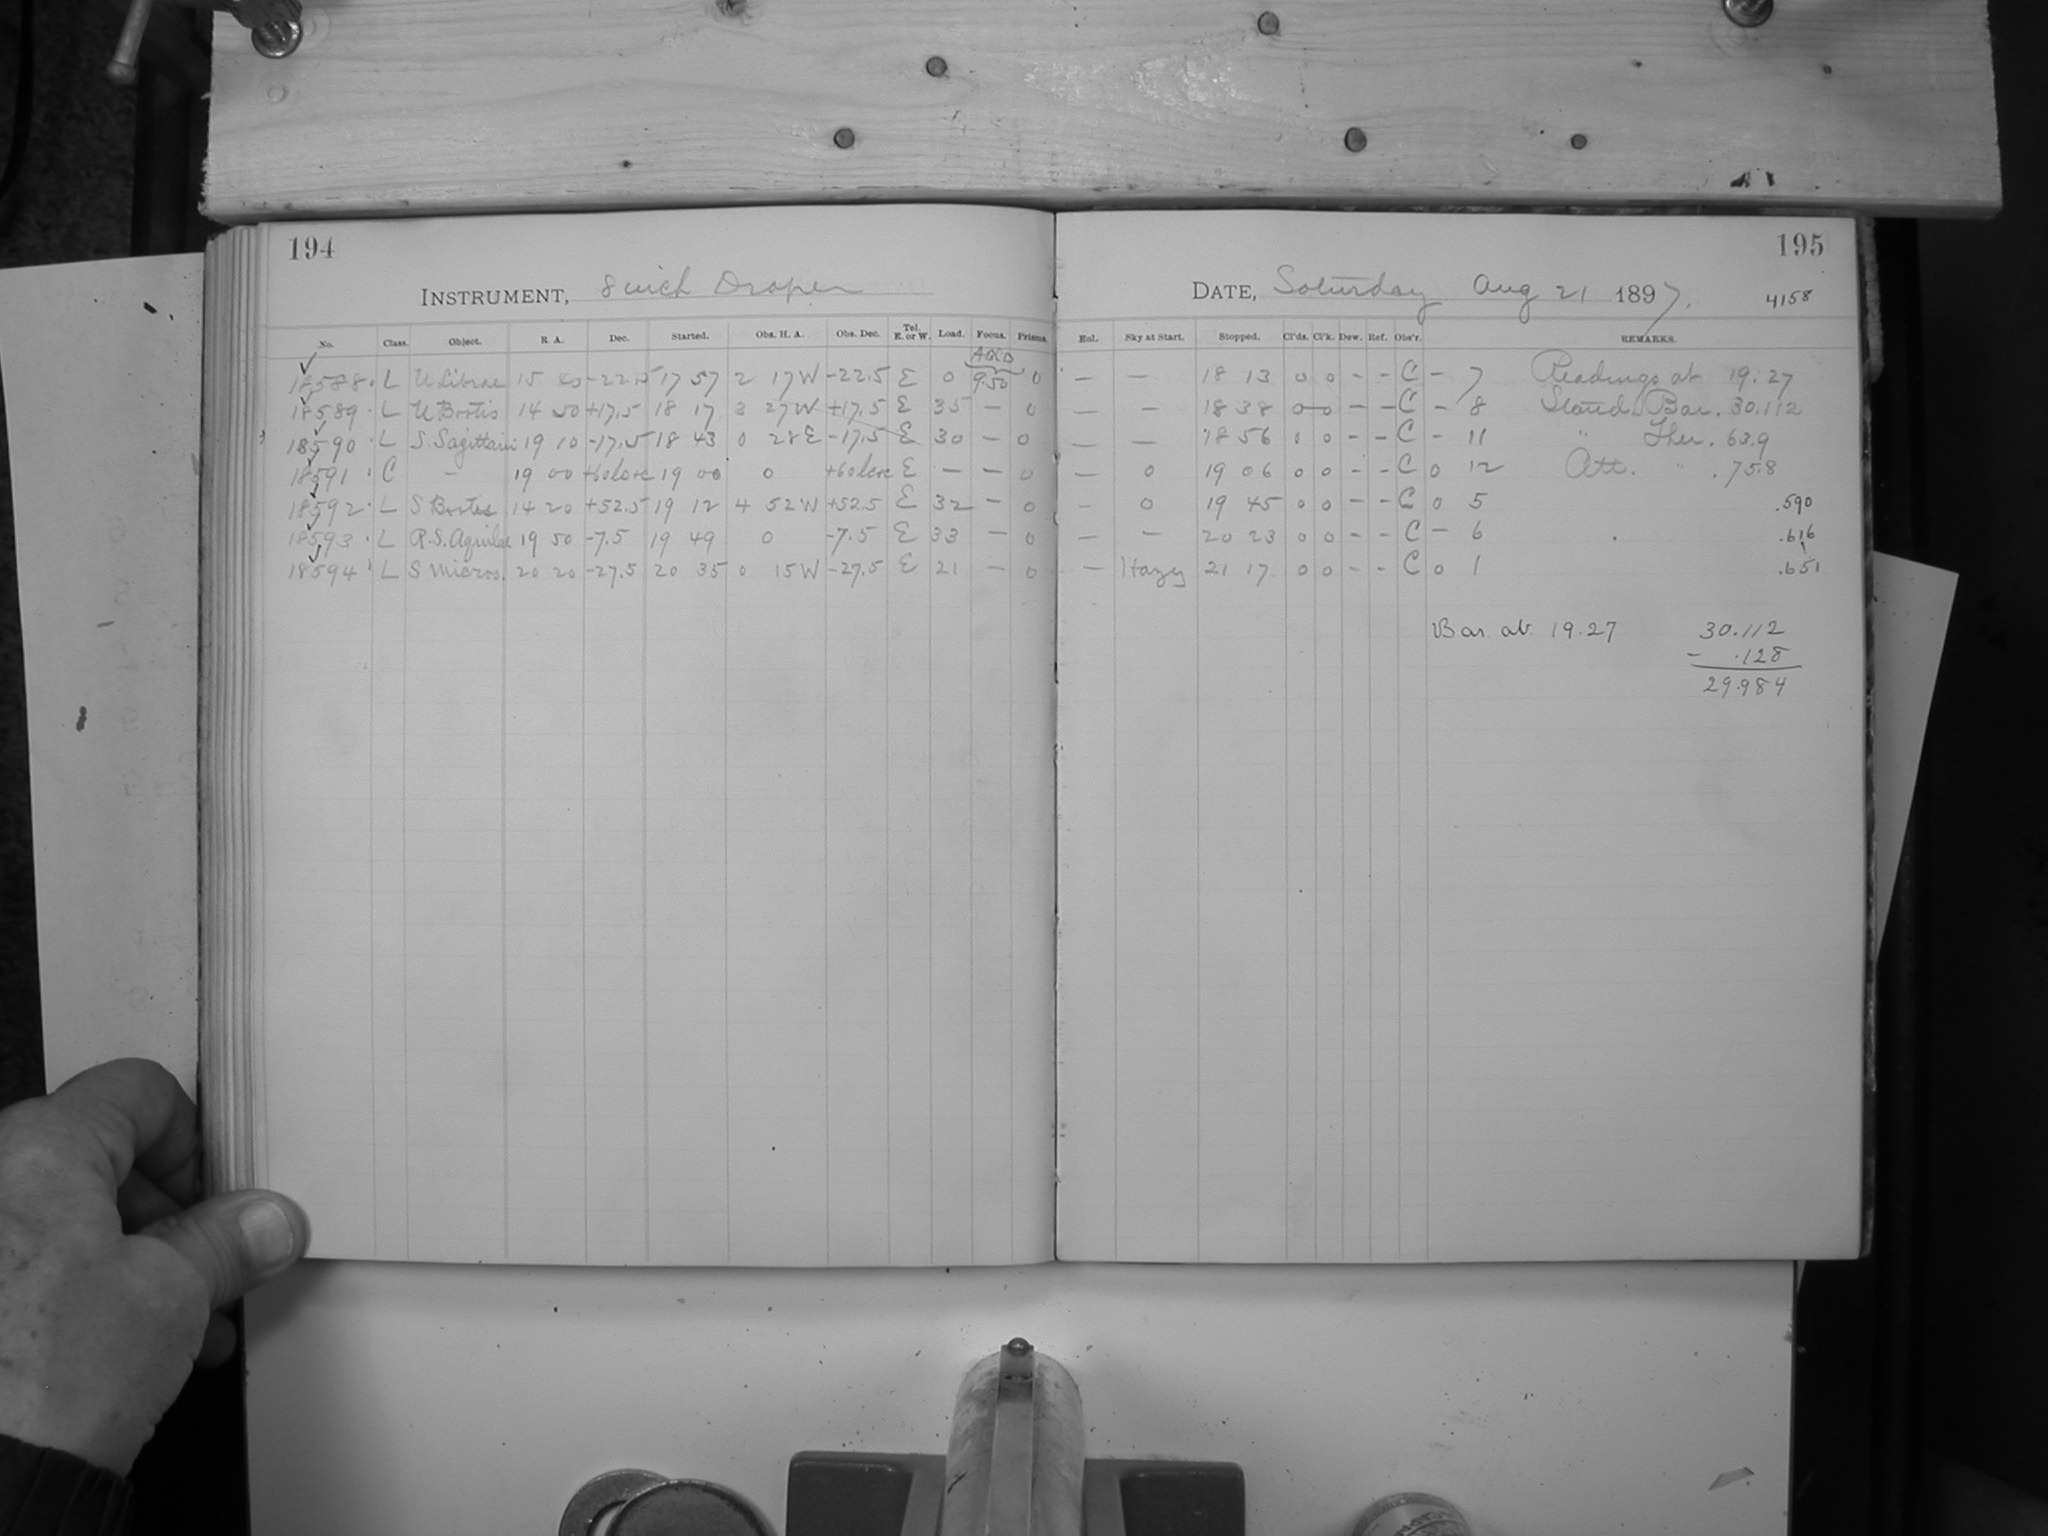 194
INSTRUMENT, 8 inch Draper
No. Class. Object. R. A. Dec. Started. Obs. H. A. Obs. Dec. Tel. E. or W. Load. Focus. Prisms.
ABCD
18588 L U Librae 15 40 -22.5 17 57 2 17 W -22.5 E 0 9.50 0
18589 L U Bootis 14 50 +17.5 18 17 3 27 W +17.5 E 35 - 0
18590 L S. Sagittarii 19 10 -17.5 18 43 0 28 E -17.5 E 30 - 0
18591 C - 19 00 19 00 0 E - - 0
18592 L S Bootis 14 20 +52.5 19 12 4 52 W +52.5 E 32 - 0
18593 L R.S. Aquilae 19 50 -7.5 19 49 0 -7.5 E 33 - 0
18594 L S Micros. 20 20 -27.5 20 35 0 15 W -27.5 E 21 - 0
195
DATE, Saturday Aug 21 1897. 4158
Enl. Sky at Start. Stopped. Cl'ds. Cl'k. Dew. Ref. Obs'r. REMARKS.
- - 18 13 0 0 - - C - 7 Readings at 19:27
- - 18 38 0 0 - - C - 8 Stand. Bar. 30.112
- - 18 56 0 0 - - C - 11 " Ther. 63.9
- 0 19 06 0 0 - - C 0 12 Att. " . 75.8
- 0 19 45 0 0 - - C 0 5 .590
- - 20 23 0 0 - - C - 6 .616
- Hazy 21 17 0 0 - - C 0 1 .651
Bar. at 19.27 30.112
- .128
29.984